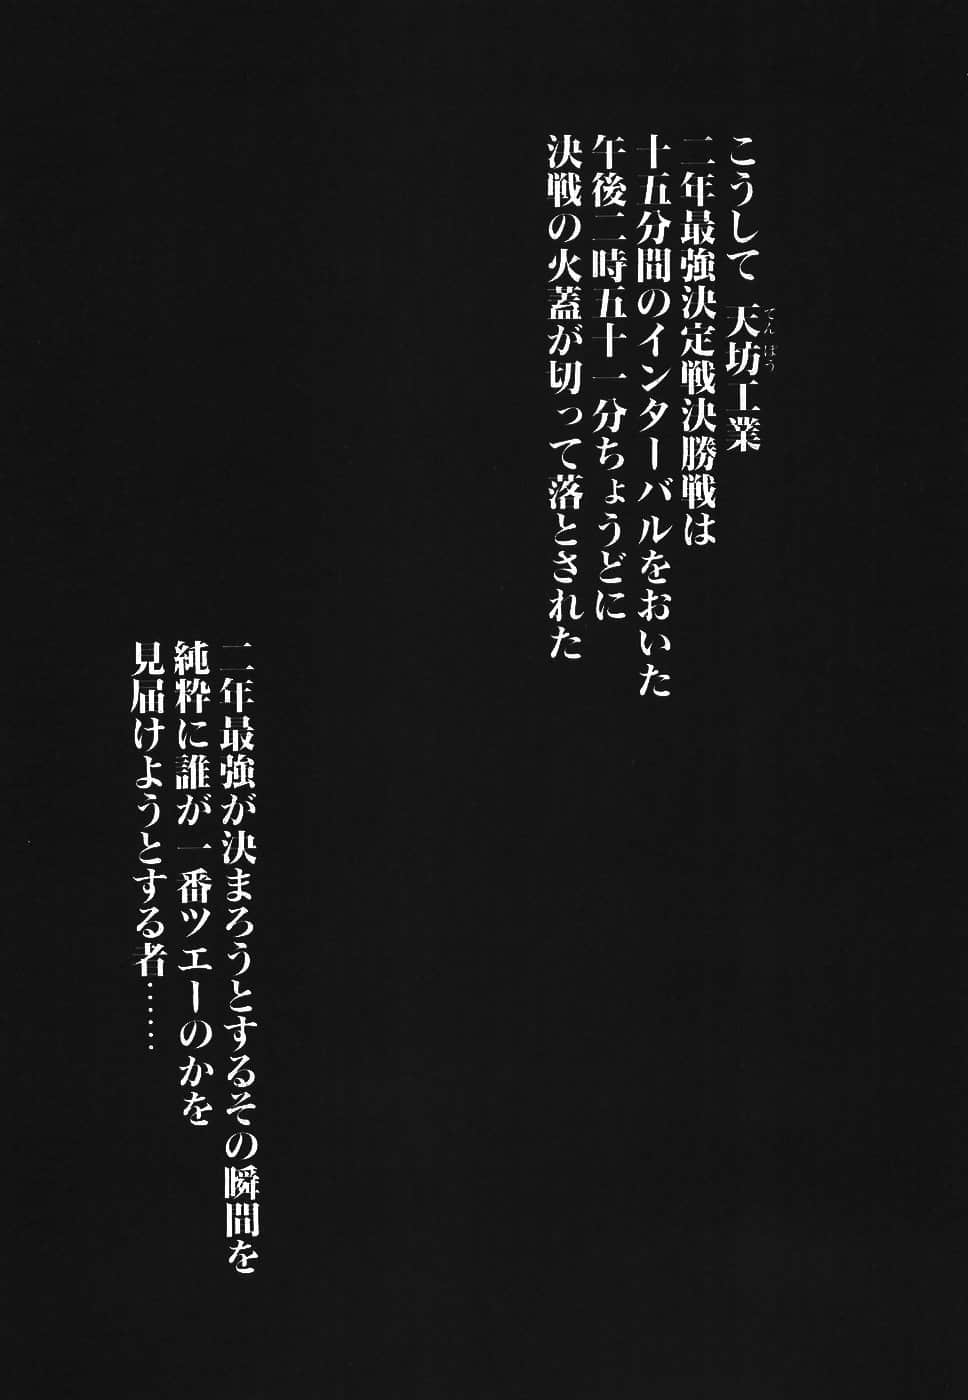 こうして 天坊工業
てんぼう
二年最強決定戦決勝戦は
十五分間のインターバルをおいた
午後二時五十一分ちょうどに
決戦の火蓋が切って落とされた
二年最強が決まろうとするその瞬間を
純粋に誰が一番ツエーのかを
見届けようとする者……